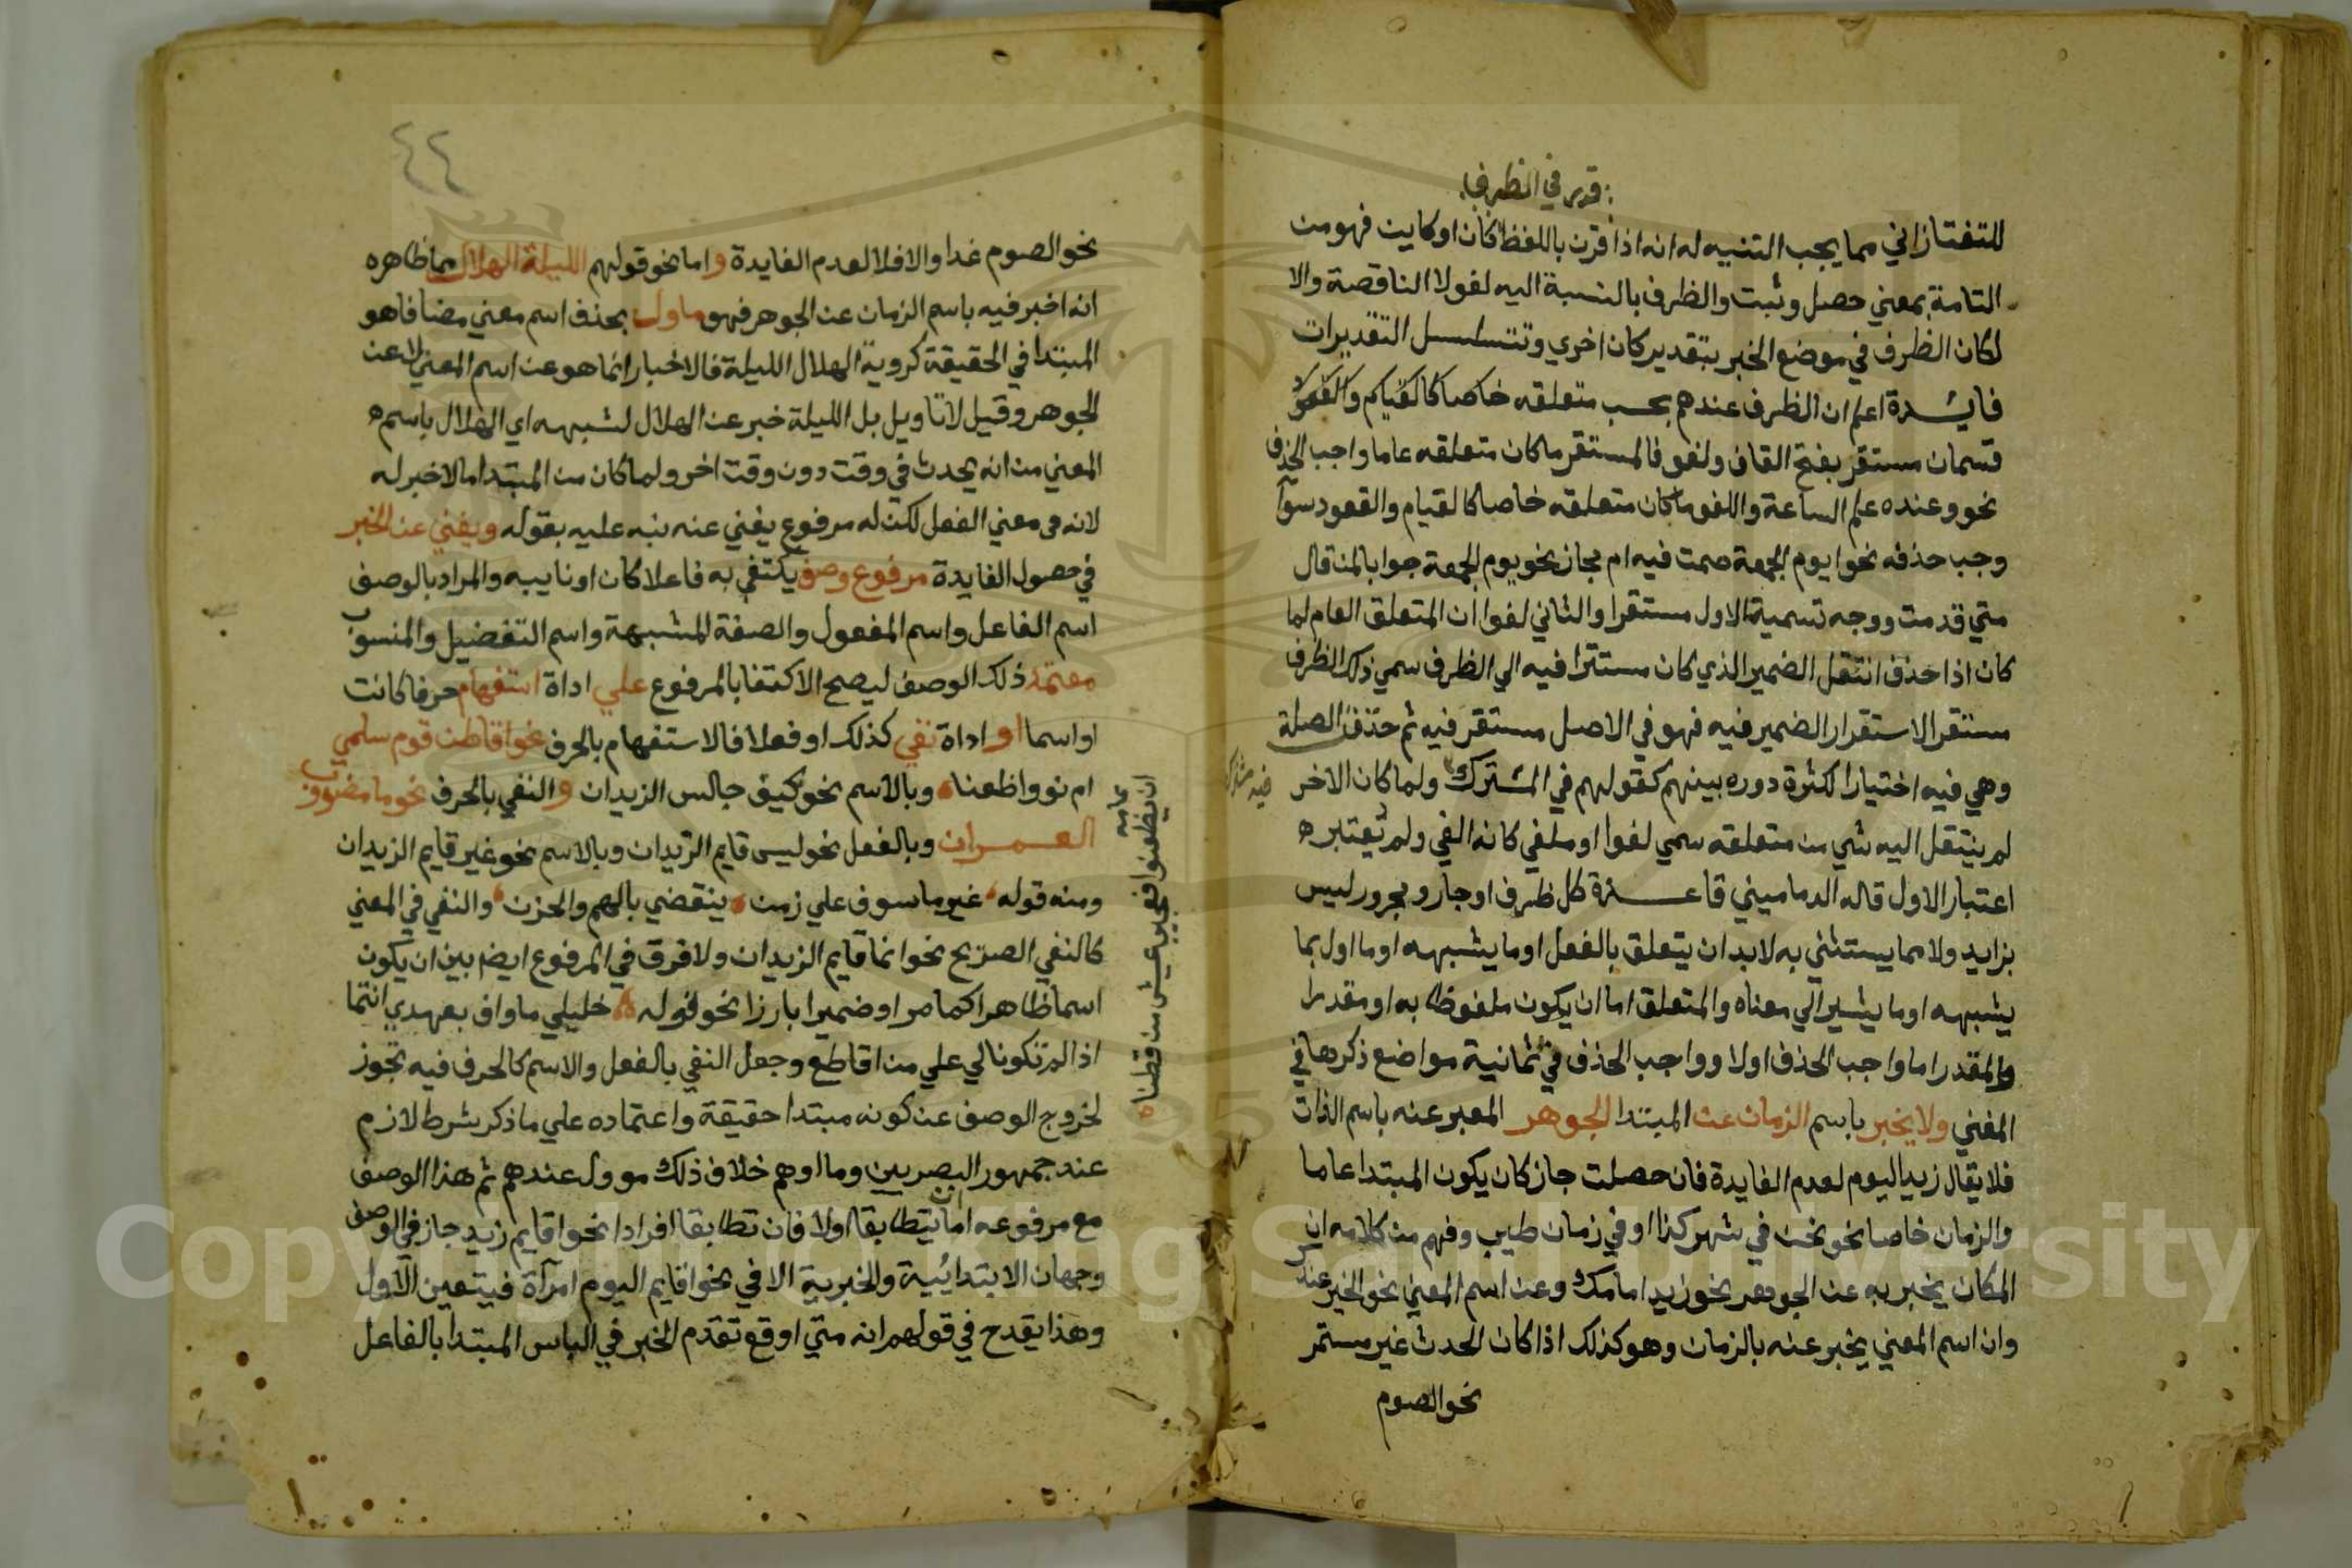 قدر في الظرف
للتفتازاني مما يجب التنبيه له انه اذا قرن باللفظ كان او كاين فهو من
التامة بمعني حصل وثبت والظرف بالنسبة اليه لغو لا الناقصة والا
لكان الظرف في موضع الخبر بتقدير كان اخري وتتسلسل التقديرات
فايدة اعلم ان الظرف عندهم بحسب متعلقه
قسمان مستقر بفتح القاف ولغو فالمستقر ما كان متعلقه عاما واجب الحذف
نحو وعنده علم الساعة واللغو ما كان متعلقه خاصا كالقيام والقعود سوآ
وجب حذفه نحو ايوم الجمعة صمت فيه ام جاز نحو يوم الجمعة جوابا لمن قال
متي قدمت ووجه تسمية الاول مستقرا والثاني لغوا ان المتعلق العام لما
كان اذا حذف انتقل الضمير الذي كان مستترا فيه الي الظرف سمي ذلك الظرف
مستقرا لاستقرار الضمير فيه فهو في الاصل مستقر فيه ثم حذفت الصلة
وهي فيه اختيارا لكثرة دوره بينهم كقولهم في المشترك ولما كان الاخر
فيه مشترك
لم ينتقل اليه شي من متعلقه سمي لغوا او ملغي كانه الغي ولم يعتبره
اعتبار الاول قاله الدماميني قاعدة كل ظرف او جار ومجرور ليس
بزايد ولا مما يستثني به لابد ان يتعلق بالفعل او ما يشبهه او ما اول بما
يشبهه او ما يشير الي معناه والمتعلق اما ان يكون ملفوظا به او مقدرا
والمقدر اما واجب الحذف اولا وواجب الحذف في ثمانية مواضع ذكرها في
المغني ولا يخبر باسم الزمان عن المبتدا الجوهر المعبر عنه باسم الذات
فلا يقال زيد اليوم لعدم الفايدة فان حصلت جاز كان يكون المبتدا عاما
والزمان خاصا نحو نحن في شهر كذا او في زمان طيب وفهم من كلامه ان
المكان يخبر به عن الجوهر نحو زيد امامك وعن اسم المعني نحو الخير عندك
وان اسم المعني يخبر عنه بالزمان وهو كذلك اذا كان الحدث غير مستمر
نحو الصوم
٤٤
نحو الصوم غدا والا فلا لعدم الفايدة واما نحو قولهم الليلة الهلال مما ظاهره
انه اخبر فيه باسم الزمان عن الجوهر فهو ماول بحذف اسم معني مضافا هو
المبتدا في الحقيقة كروية الهلال الليلة فالاخبار انما هو عن اسم المعني لا عن
الجوهر وقيل لا تاويل بل الليلة خبر عن الهلال لشبهه اي الهلال باسم
المعني من انه يحدث في وقت دون وقت اخر ولما كان من المبتدا ما لا خبر له
لانه في معني الفعل لكن له مرفوع يغني عنه نبه عليه بقوله ويغني عن الخبر
في حصول الفايدة مرفوع وصف يكتفي به فاعلا كان او نايبه والمراد بالوصف
اسم الفاعل واسم المفعول والصفة المشبهة واسم التفضيل والمنسوب
معتمد ذلك الوصف ليصح الاكتفا بالمرفوع علي اداة استفهام حرفا كانت
او اسما او اداة نفي كذلك او فعلا فالاستفهام بالحرف نحو اقاطن قوم سلمي
ام نووا ظعنا وبالاسم نحو كيف جالس الزيدان والنفي بالحرف نحو ما مضروب
ان يظعنوا فعجيب عيش من قطنا
العمران وبالفعل نحو ليس قايم الزيدان وبالاسم نحو غير قايم الزيدان
ومنه قوله غير ماسوف علي زمن ينقضي بالهم والحزن والنفي في المعني
كالنفي الصريح نحو انما قايم الزيدان ولا فرق في المرفوع ايضا بين ان يكون
اسما ظاهرا كما مر او ضميرا بارزا نحو قوله خليلي ما واف بعهدي انتما
اذا لم تكونا لي علي من اقاطع وجعل النفي بالفعل والاسم كالحرف فيه تجوز
لخروج الوصف عن كونه مبتدا حقيقة واعتماده علي ما ذكر شرط لازم
عند جمهور البصريين وما اوهم خلاف ذلك موول عندهم ثم هذا الوصف
مع مرفوعه اما ان يتطابقا اولا فان تطابقا افرادا نحو اقايم زيد جاز في الوصف
وجهان الابتدايية والخبرية الا في نحو اقايم اليوم امرآة فيتعين الاول
وهذا يقدح في قولهم انه متي اوقع تقدم الخبر في الباس المبتدا بالفاعل